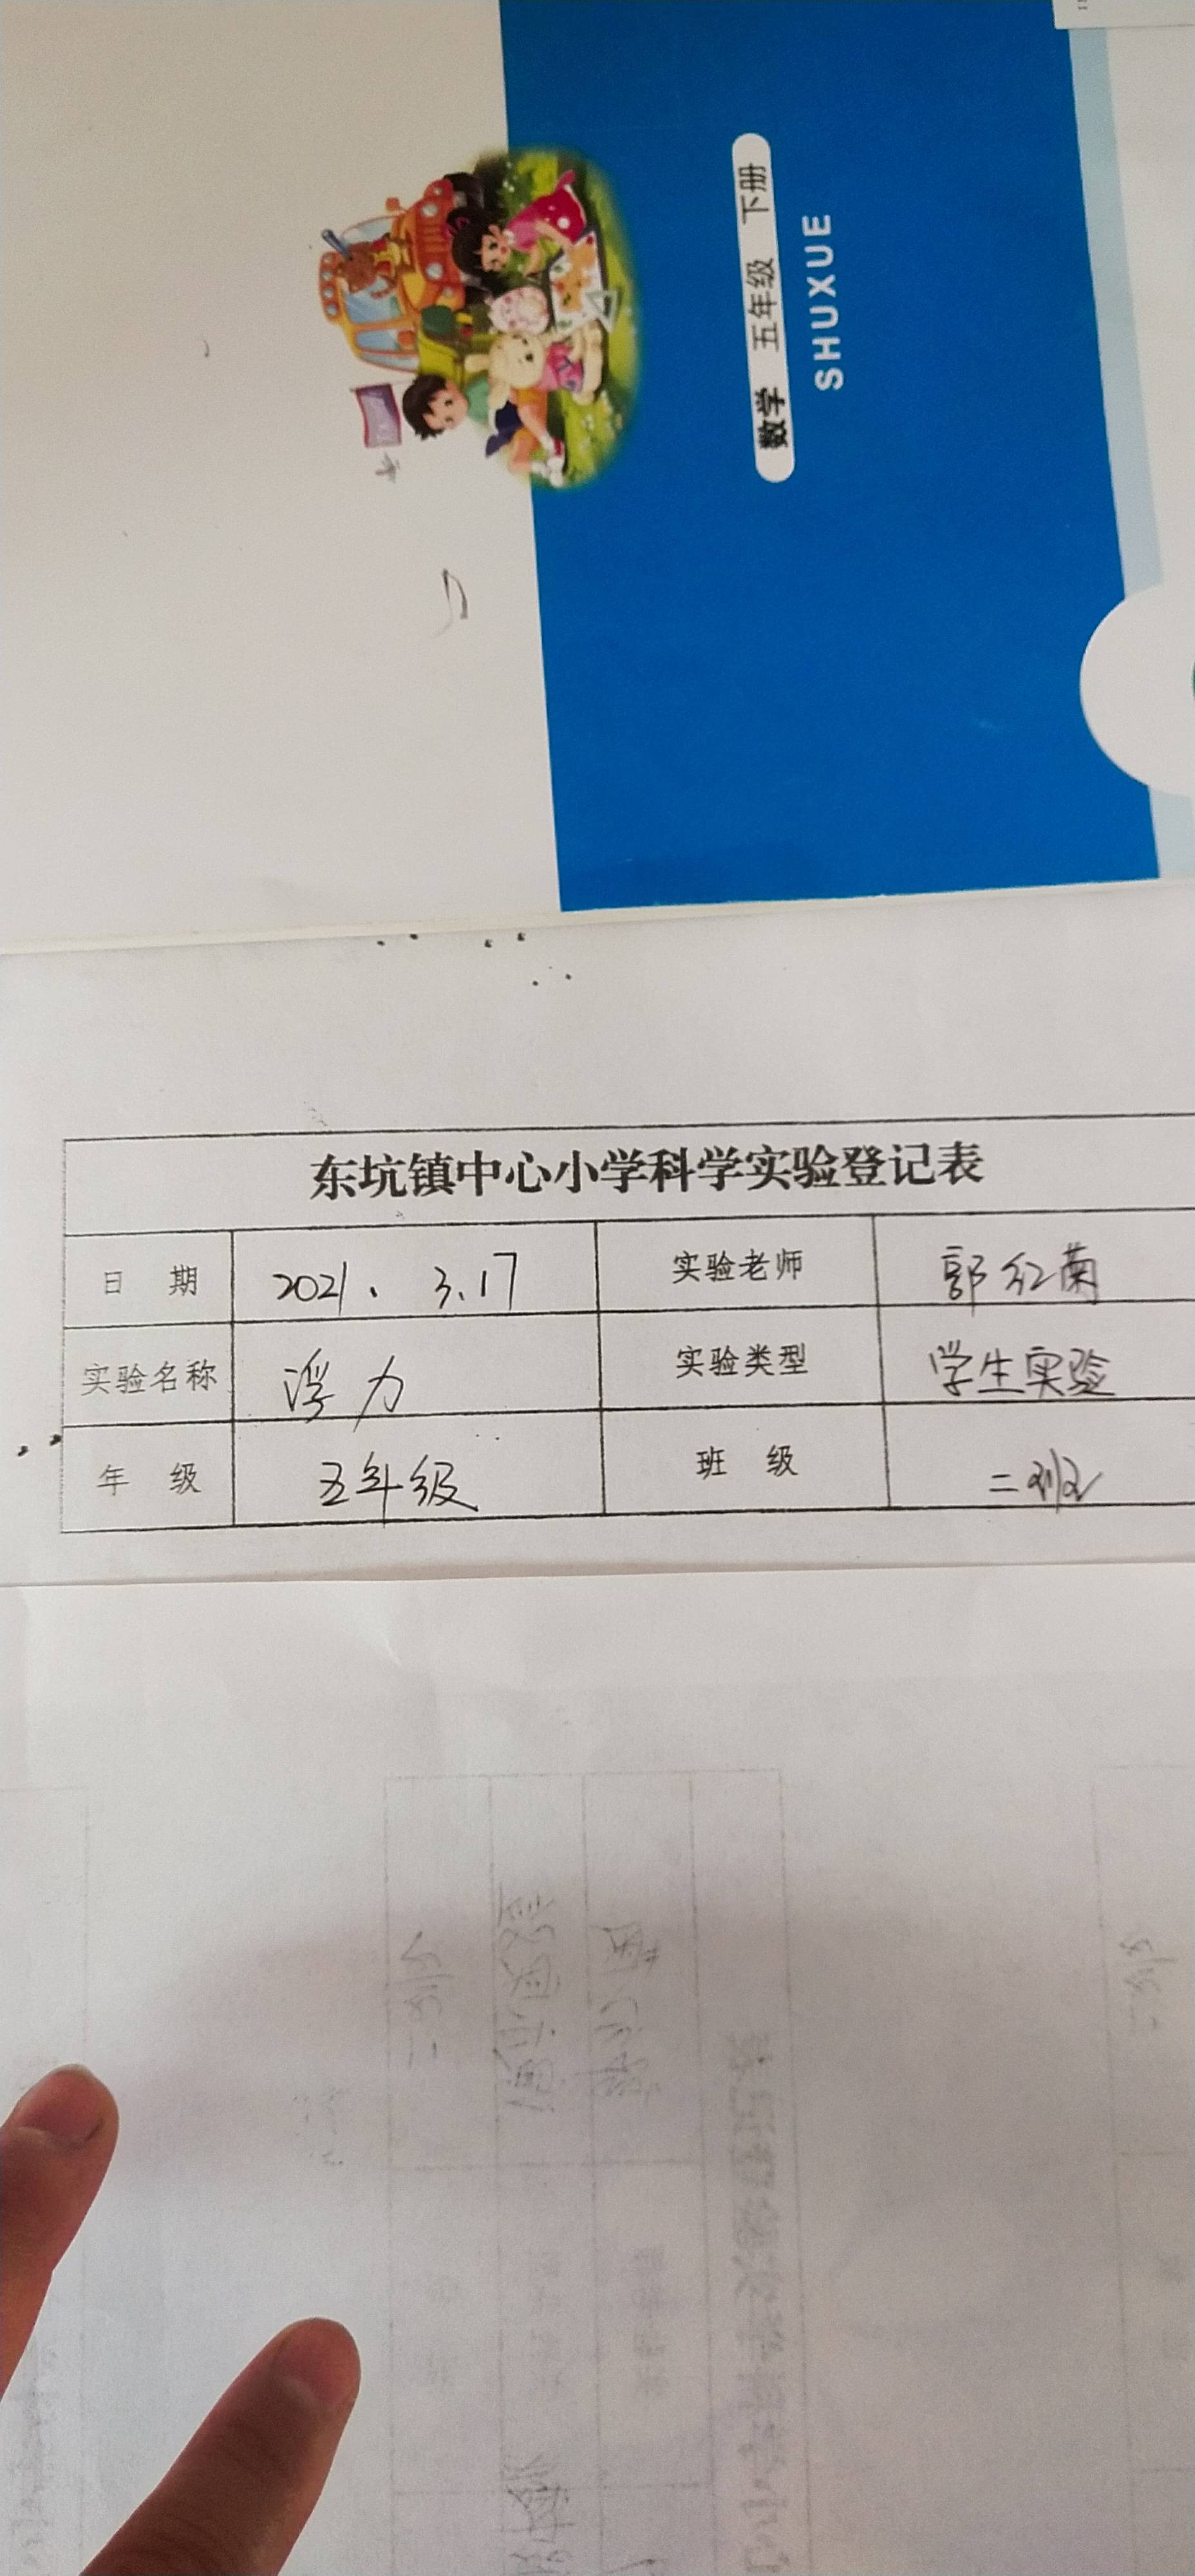 数学 五年级 下册
SHUXUE
东坑镇中心小学科学实验登记表
日 期 2021. 3.17 实验老师 郭红南
实验名称 浮力 实验类型 学生实验
年 级 五年级 班 级 二班